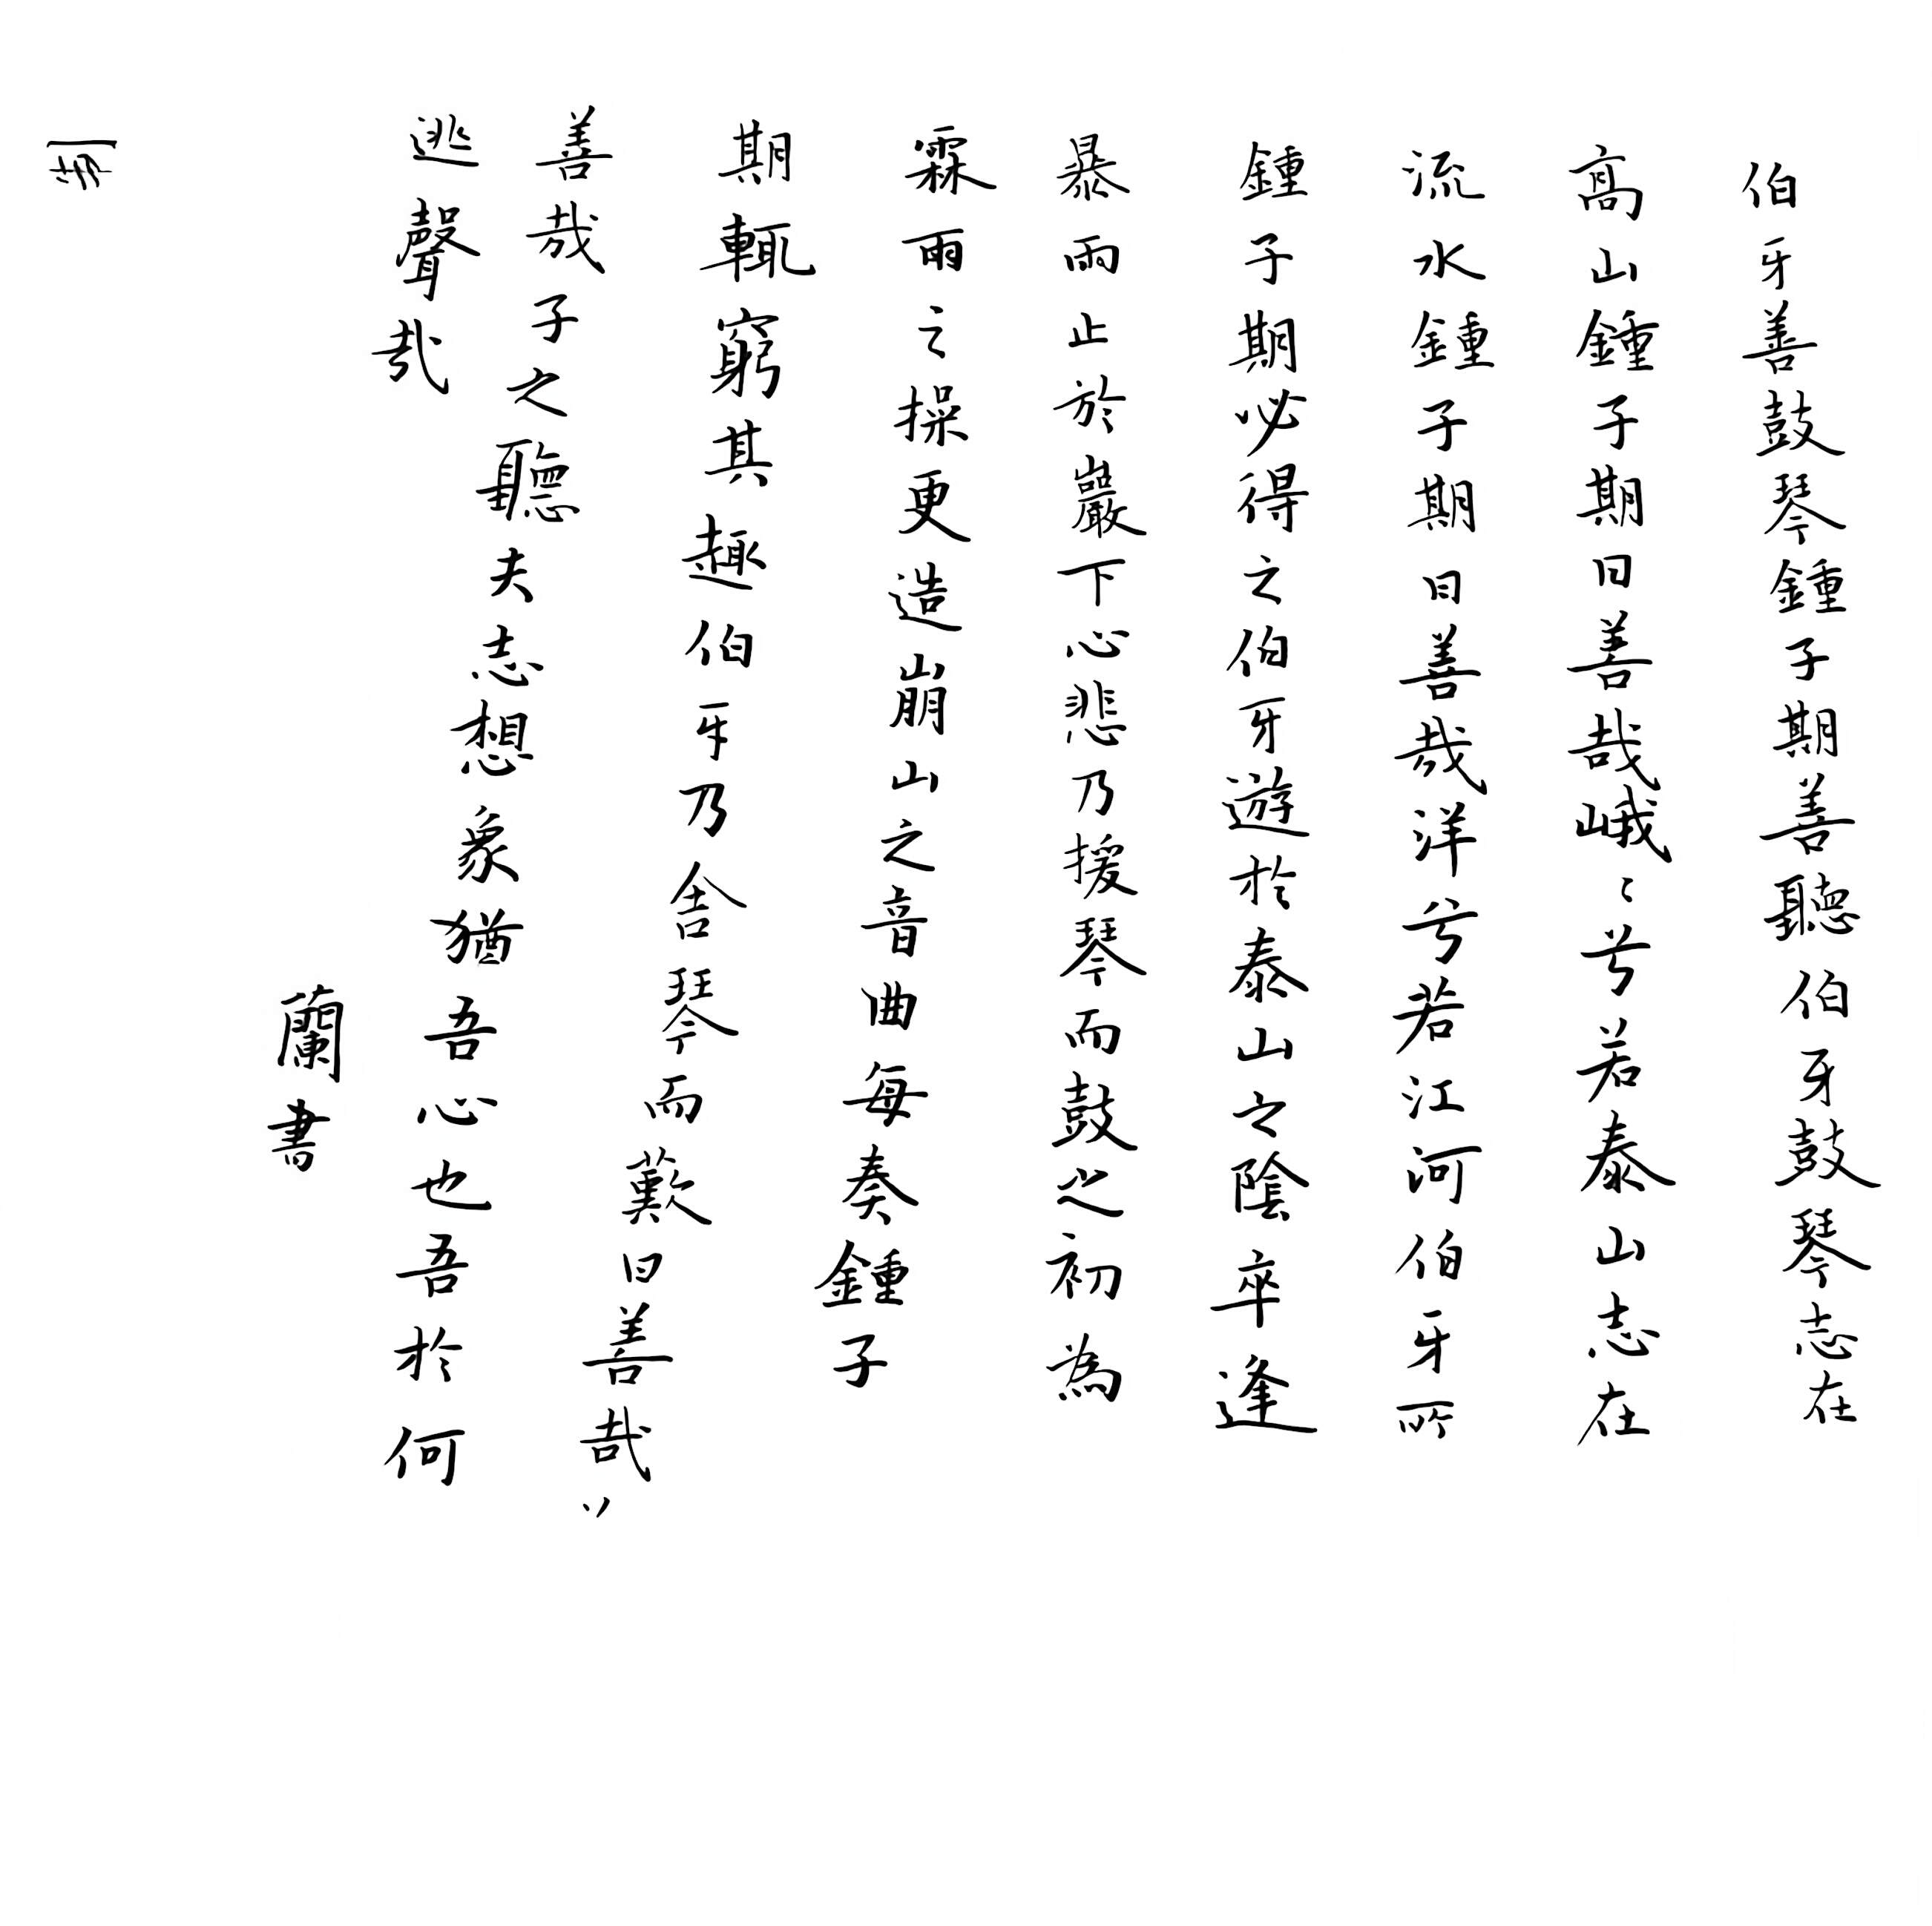 伯牙善鼓琴鍾子期善聽伯牙鼓琴志在
高山鍾子期曰善哉峨〻兮若泰山志在
流水鍾子期曰善哉洋兮若江河伯牙所
鍾子期必得之伯牙遊於泰山之陰卒逢
暴雨止於巖下心悲乃援琴而鼓之初為
霖雨之操更造崩山之音曲每奏鍾子
期輒窮其趣伯牙乃舍琴而歎曰善哉〻
善哉子之聽夫志想象猶吾心也吾於何
逃聲哉
蘭書